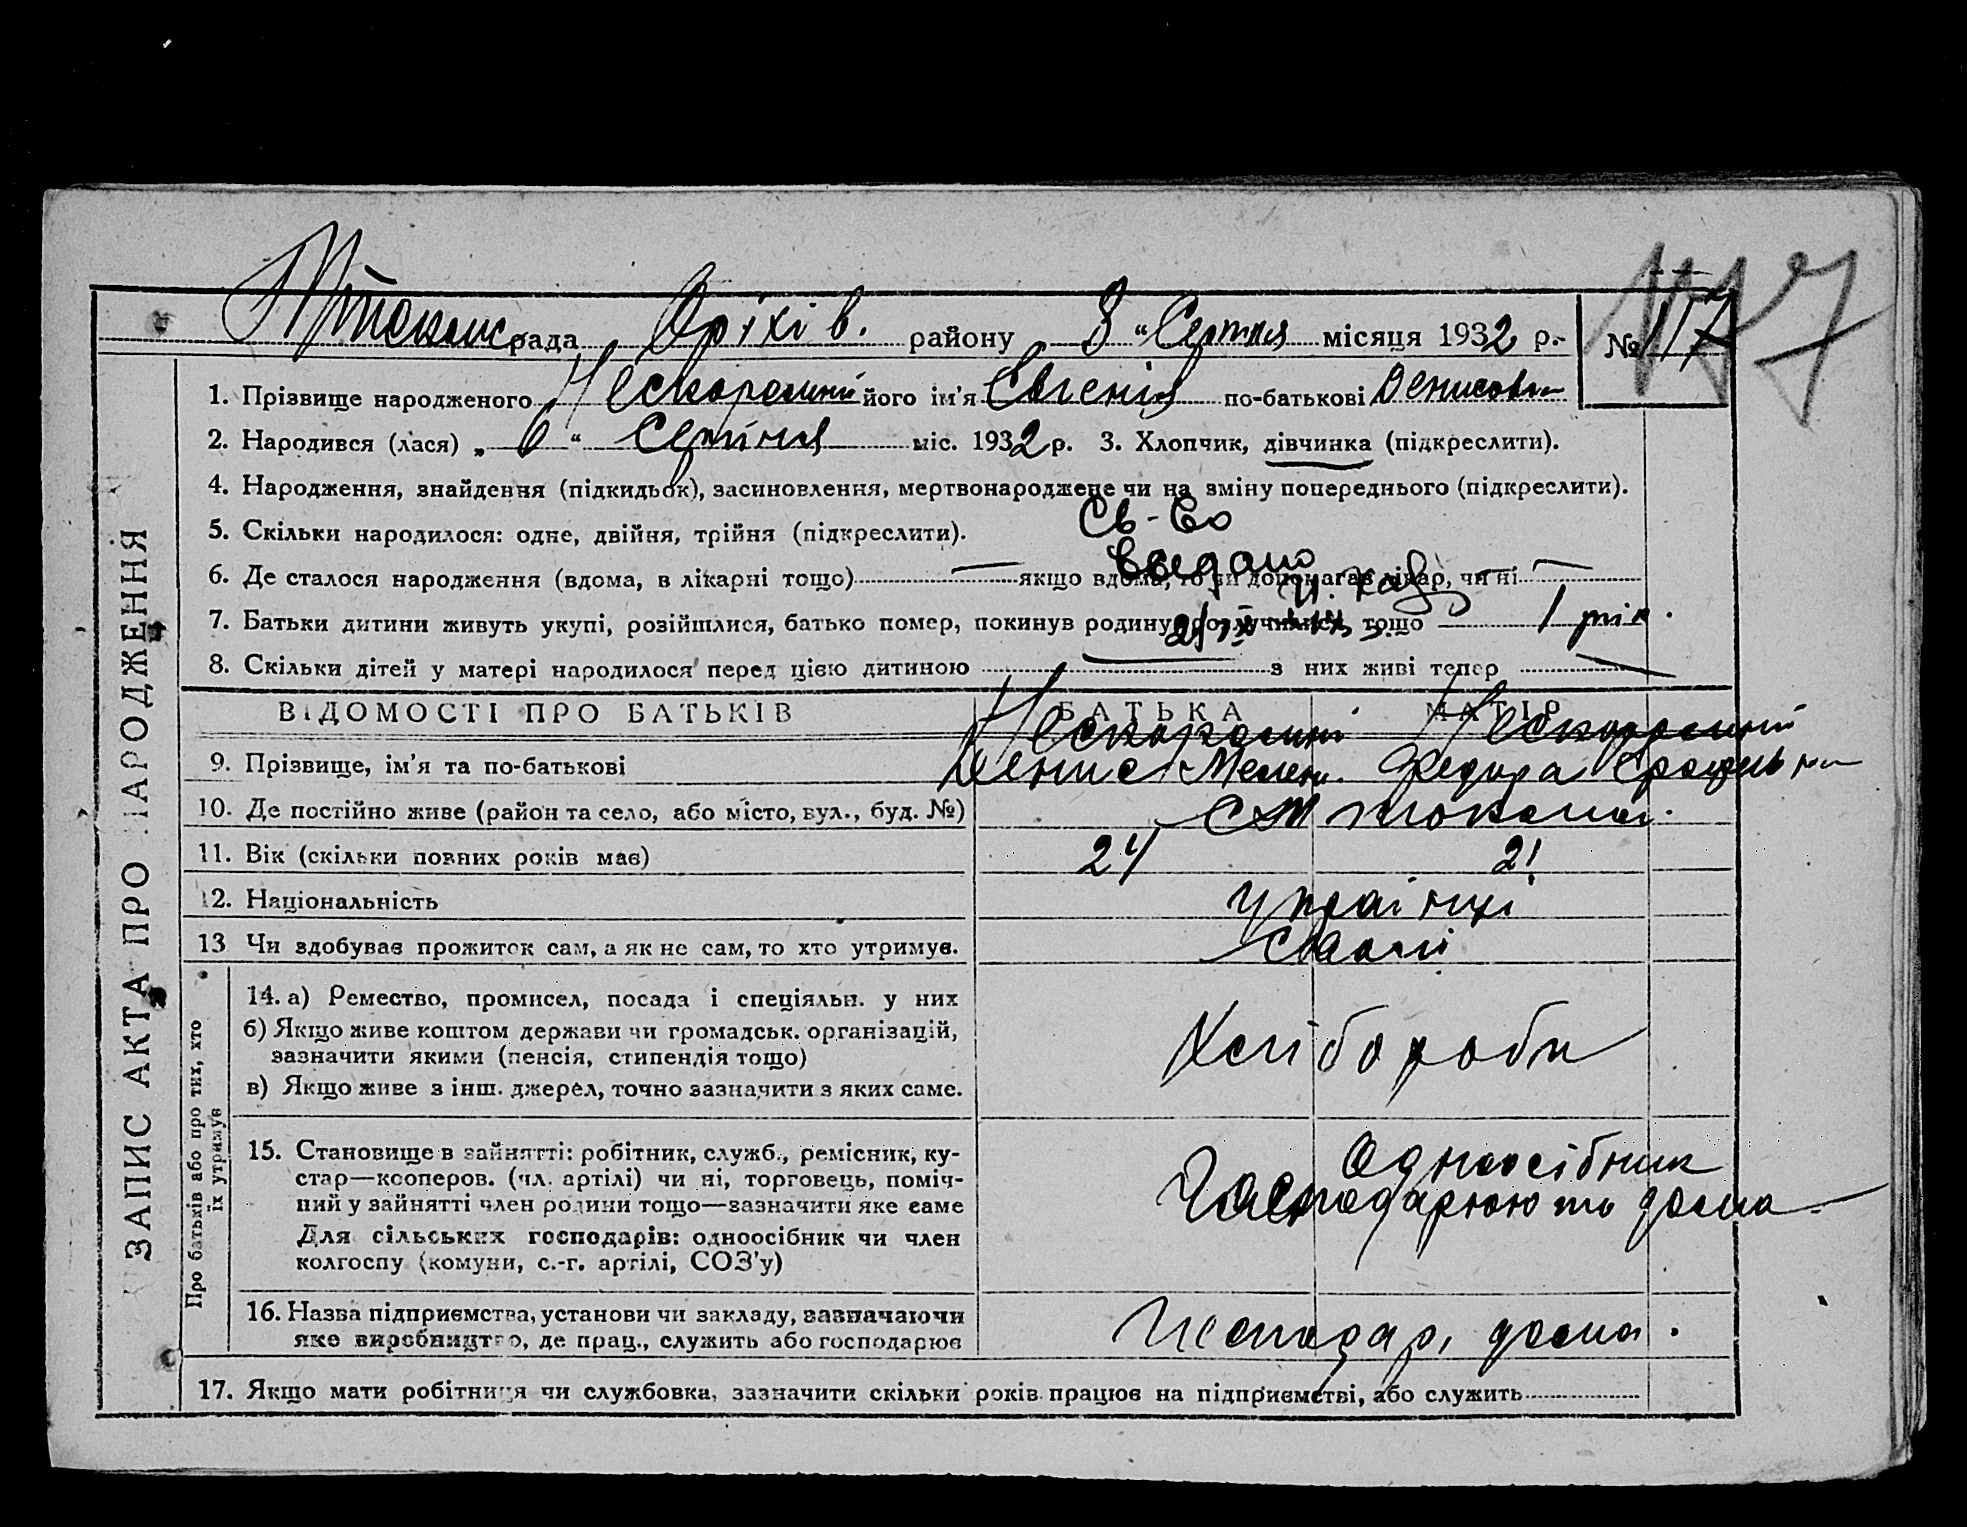 рада Оріхів. району 8 „ Серпня місяця 1932 р.- № 117
117
1. Прізвище народженого його ім'я Євгенія по-батькові Денисовн
2. Народився (лася) „ 6 “ Серпня міс. 1932 р. 3. Хлопчик, дівчинка (підкреслити).
4. Народження, знайдення (підкидьок), засиновлення, мертвонароджене чи на зміну попереднього (підкреслити).
5. Скільки народилося: одне, двійня, трійня (підкреслити).
Св-во
6. Де сталося народження (вдома, в лікарні тощо) — якщо вдома, то чи допомагав лікар, чи ні —
выдано
7. Батьки дитини живуть укупі, розійшлися, батько помер, покинув родину, розлучилися, тощо 1 рік.
8. Скільки дітей у матері народилося перед цією дитиною — з них живі тепер —
ЗАПИС АКТА ПРО НАРОДЖЕННЯ
ВІДОМОСТІ ПРО БАТЬКІВ БАТЬКА МАТІР
9. Прізвище, ім'я та по-батькові Денис Федора
10. Де постійно живе (район та село, або місто, вул., буд. №)
11. Вік (скільки повних років має) 24 21
12. Національність Українці
13 Чи здобував прожиток сам, а як не сам, то хто утримує. Самі
Про батьків або про тих, хто їх утримує
14. а) Ремество, промисел, посада і спеціяльн. у них
б) Якщо живе коштом держави чи громадськ. організацій,
зазначити якими (пенсія, стипендія тощо)
Хлібороби
в) Якщо живе з інш. джерел, точно зазначити з яких саме.
15. Становище в зайнятті: робітник, служб., ремісник, ку-
стар—кооперов. (чл. артілі) чи ні, торговець, поміч-
ний у зайнятті член родини тощо—зазначити яке саме
Для сільських господарів: одноосібник чи член
колгоспу (комуни, с.-г. артілі, СОЗ'у)
Одноосібник
Господарюють дома
16. Назва підприємства, установи чи закладу, зазначаючи
яке виробництво, де прац., служить або господарює
Господар, дома.
17. Якщо мати робітниця чи службовка, зазначити скільки років працює на підприємстві, або служить